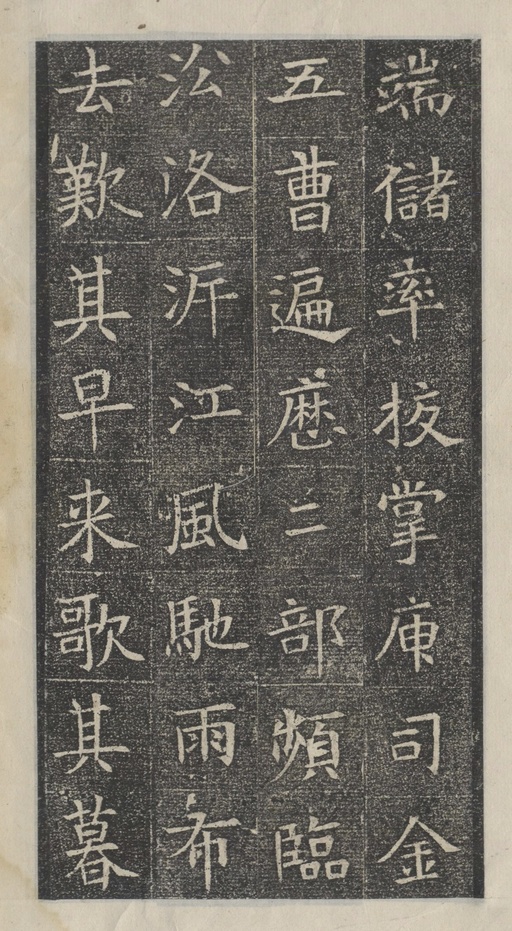 端儲率授掌庫司金
五曹遍歷二部頻臨
汾洛沂江風馳雨布
去歎其早来歌其暮